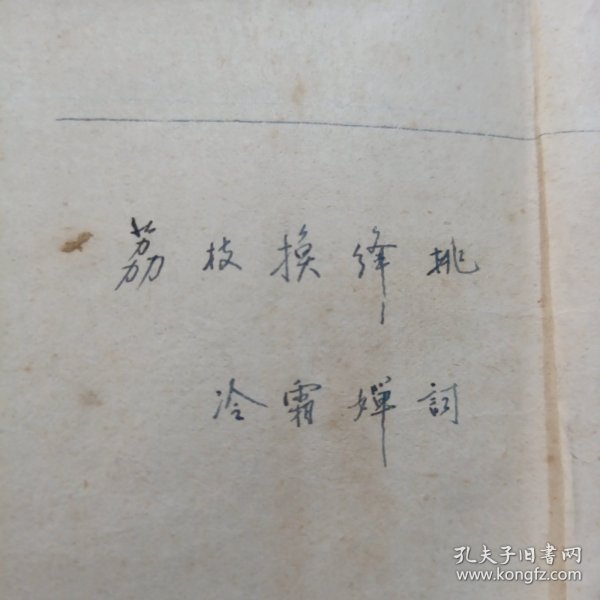 荔枝换绛桃
冷霜婵詞
孔夫子旧书网
www.kongfz.com